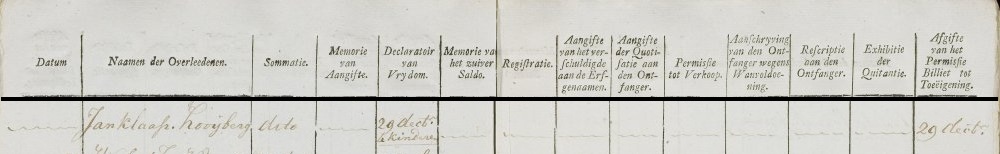 Datum
Naamen der Overleedenen.
Sommatie.
Memorie
van
Aangifte.
Declaratoir
van
Vrydom.
Memorie van
het zuiver
Saldo.
Regiſtratie.
Aangifte
van het ver-
ſchuldigde
aan de Erf-
genaamen.
Aangifte
der Quoti-
ſatie aan
den Ont-
fanger.
Permiſſie
tot Verkoop.
Aanſchryving
van den Ont-
fanger wegens
Wanvoldoe-
ning.
Reſcriptie
aan den
Ontfanger.
Exhibitie
der
Quitantie.
Afgifte
van het
Permiſſie
Billiet tot
Toeëigening.
Jan Klaasz. Kooijberg
dito
29 dect.
29 dect.